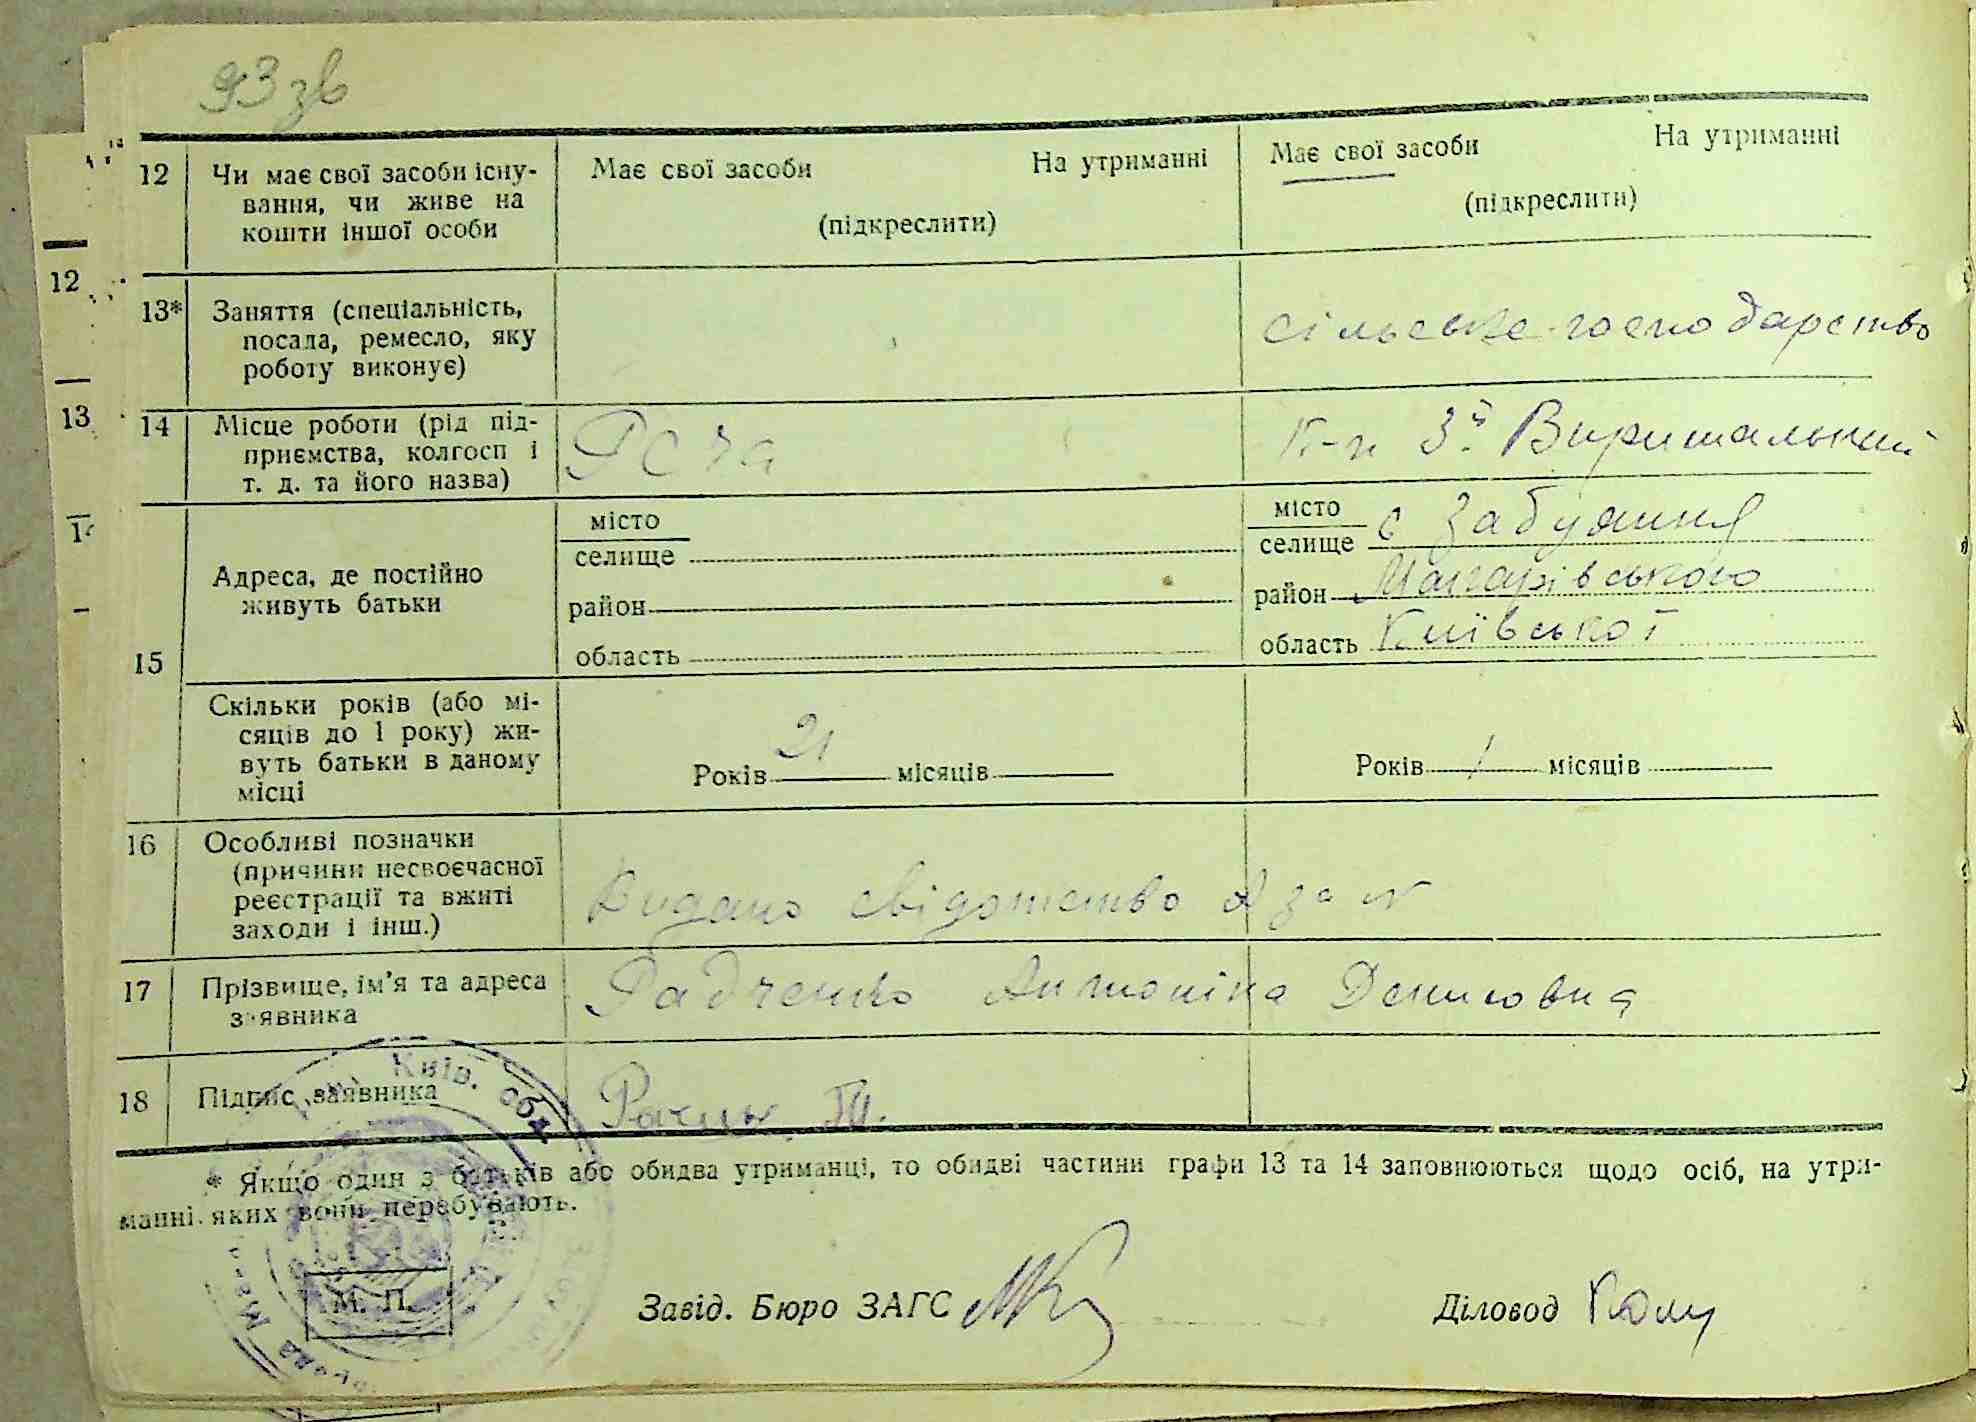 93 зв
12 Чи має свої засоби існу- Має свої засоби На утриманні Має свої засоби На утриманні
вання, чи живе на (підкреслити) (підкреслити)
кошти іншої особи
12
13* Заняття (спеціальність, сільське господарство
посада, ремесло, яку
роботу виконує)
13
14 Місце роботи (рід під- 
приємства, колгосп і
т. д. та його назва)
К-п 3й Вирішальний
15 Адреса, де постійно
живуть батьки
місто
селище
район
область
місто
селище с Забуяння
район Макарівського
область Київської
Скільки років (або мі-
сяців до 1 року) жи-
вуть батьки в даному
місці
Років 21 місяців
Років 1 місяців
16 Особливі позначки
(причини несвоєчасної
реєстрації та вжиті
заходи і інш.)
Видано свідотство за №
17 Прізвище, ім'я та адреса Радченко Антоніна Денисовна
заявника
18 Підпис заявника
* Якщо один з батьків або обидва утриманці, то обидві частини графи 13 та 14 заповнюються щодо осіб, на утри-
манні яких вони перебувають.
Київ. обл.
М. П.
Завід. Бюро ЗАГС
Діловод